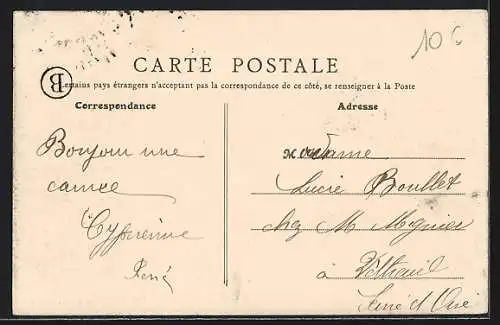 10 C
CARTE POSTALE
B
Certains pays étrangers n'acceptant pas la correspondance de ce côté, se renseigner à la Poste
Correspondance
Adresse
Bonjour une
amie
Cyprienne
René
Madame
Lucie Boullet
chez M Mignier
à Vétheuil
Seine et Oise